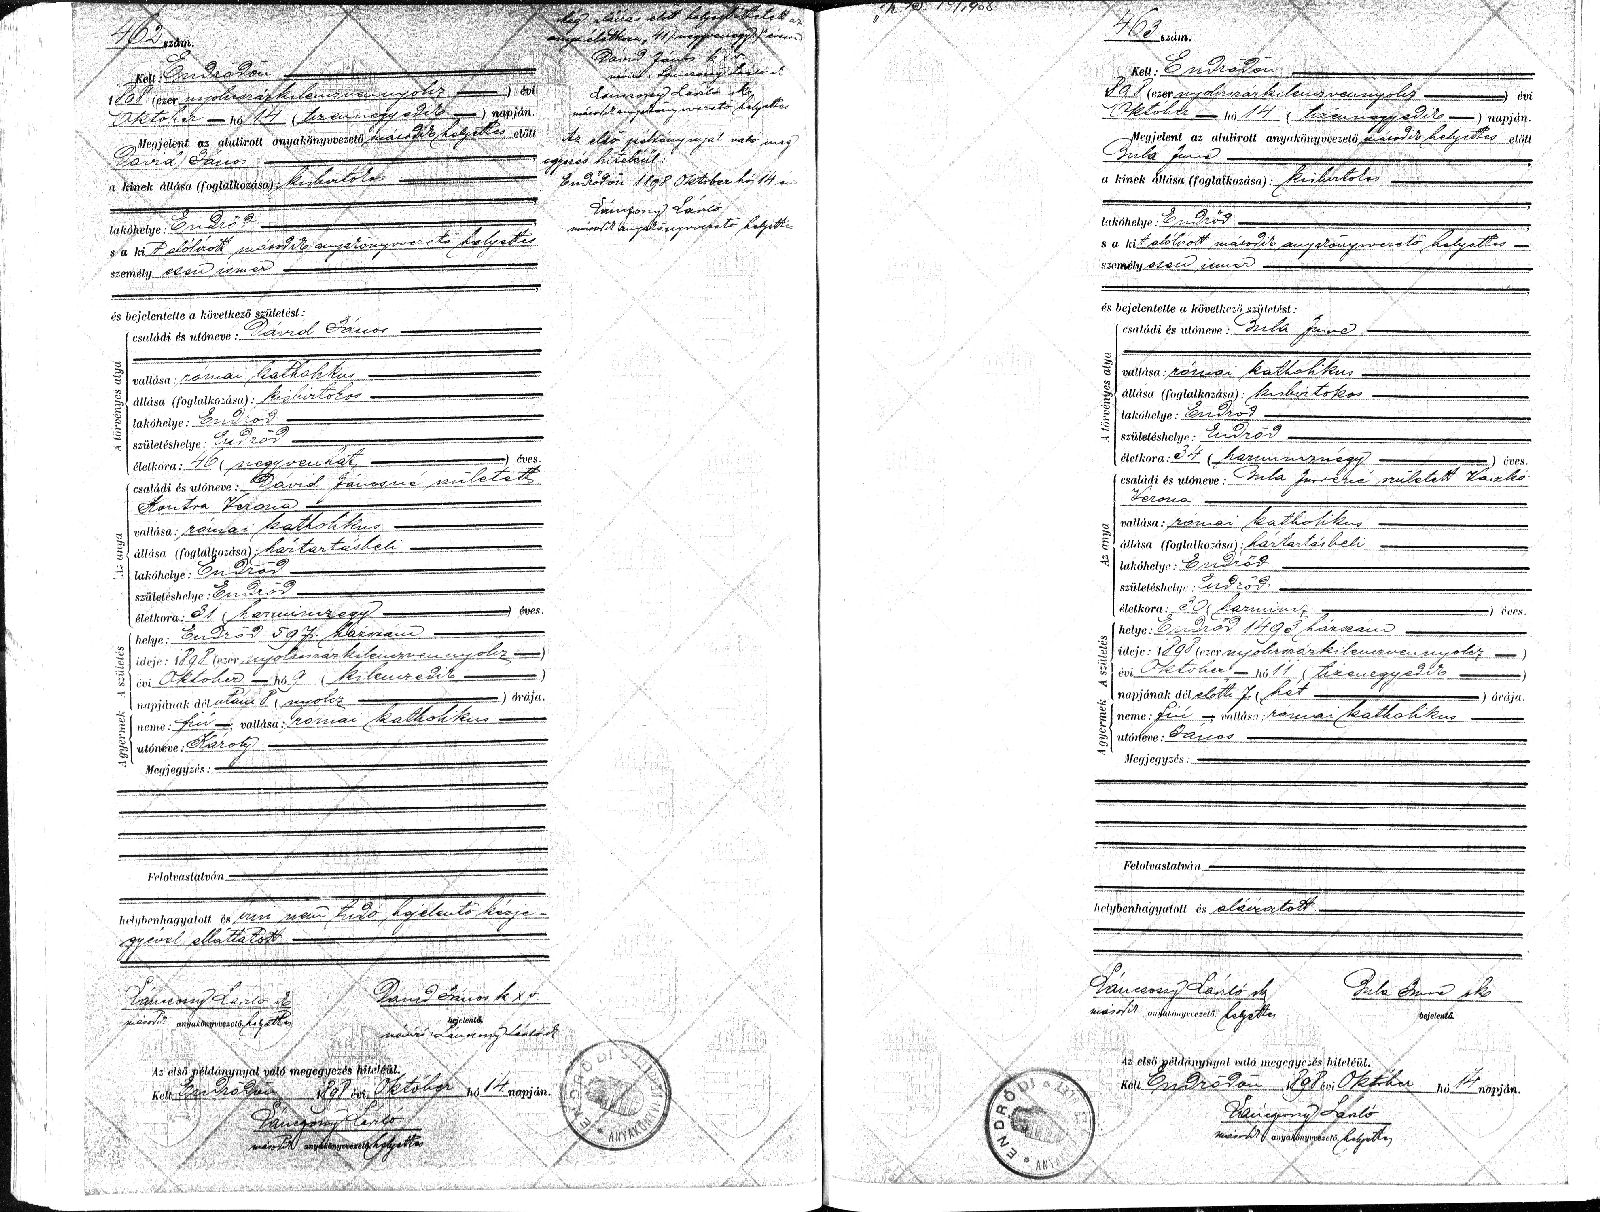 462 szám.
Kelt: Endrődön
1898 (ezer nyolcszázkilencvennyolcz) évi
Október hó 14 (tizennegyedik) napján.
Megjelent az alulirott anyakönyvezető második helyettes előtt
Dávid János
a kinek állása (foglalkozása): kisbirtokos
lakóhelye: Endrőd
s a kit alólirott második anyakönyvvezető helyettes
személyesen ismer
és bejelentette a következő születést:
A törvényes atya
családi és utóneve: Dávid János
vallása: római katholikus
állása (foglalkozása): kisbirtokos
lakóhelye: Endrőd
születéshelye: Endrőd
életkora: 46 (negyvenhat) éves.
Az anya
családi és utóneve: Dávid Jánosné született
Kontra Verona
vallása: római katholikus
állása (foglalkozása): háztartásbeli
lakóhelye: Endrőd
születéshelye: Endrőd
életkora: 31 (harminczegy) éves.
A születés
helye: Endrőd 597. házszám
ideje: 1898 (ezer nyolcszázkilenczvennyolcz)
évi Október hó 9 (kilenczedik)
napjának dél utáni 8 (nyolcz) órája.
A gyermek
neme: fiú, vallása: római katholikus
utóneve: Károly
Megjegyzés:
Felolvastatván
helybenhagyatott és irni nem tudó bejelentő kézje-
gyével elláttatott
Lánczony László sk
második anyakönyvvezető helyettes
Dávid János k x v
bejelentő.
névíró: Lánczony László sk
Az első példánynyal való megegyezés hiteléül.
Kelt Endrődön 1898 évi Október hó 14 napján.
Lánczony László
második anyakönyvvezető helyettes
Dávid János k x v
Lánczony László sk
második anyakönyvvezető helyettes
Az első példánynyal való meg
egyezés hiteléül:
Endrődön 1898 Október hó 14 én
Lánczony László
második anyakönyvvezető helyettes
ENDRŐDI
ANYAKÖNYV
463 szám.
Kelt: Endrődön
1898 (ezer nyolcszázkilenczvennyolcz) évi
Október hó 14 (tizennegyedik) napján.
Megjelent az alulirott anyakönyvezető második helyettes előtt
Bula Imre
a kinek állása (foglalkozása): kisbirtokos
lakóhelye: Endrőd
s a kit alólirott második anyakönyvvezető helyettes
személyesen ismer
és bejelentette a következő születést:
A törvényes atya
családi és utóneve: Bula Imre
vallása: római katholikus
állása (foglalkozása): kisbirtokos
lakóhelye: Endrőd
születéshelye: Endrőd
életkora: 34 (harmincznégy) éves.
Az anya
családi és utóneve: Bula Imréné született
Verona
vallása: római katholikus
állása (foglalkozása): háztartásbeli
lakóhelye: Endrőd
születéshelye: Endrőd
életkora: 30 (harmincz) éves.
A születés
helye: Endrőd 1493 házszám
ideje: 1898 (ezer nyolcszázkilenczvennyolcz)
évi Október hó 11 (tizenegyedik)
napjának dél előtti 7 (hét) órája.
A gyermek
neme: fiú, vallása: római katholikus
utóneve: János
Megjegyzés:
Felolvastatván
helybenhagyatott és aláiratott
Lánczony László sk
második anyakönyvvezető helyettes
Bula Imre sk
bejelentő.
Az első példánynyal való megegyezés hiteléül.
Kelt Endrődön 1898 évi Október hó 14 napján.
Lánczony László
második anyakönyvvezető helyettes
ENDRŐDI